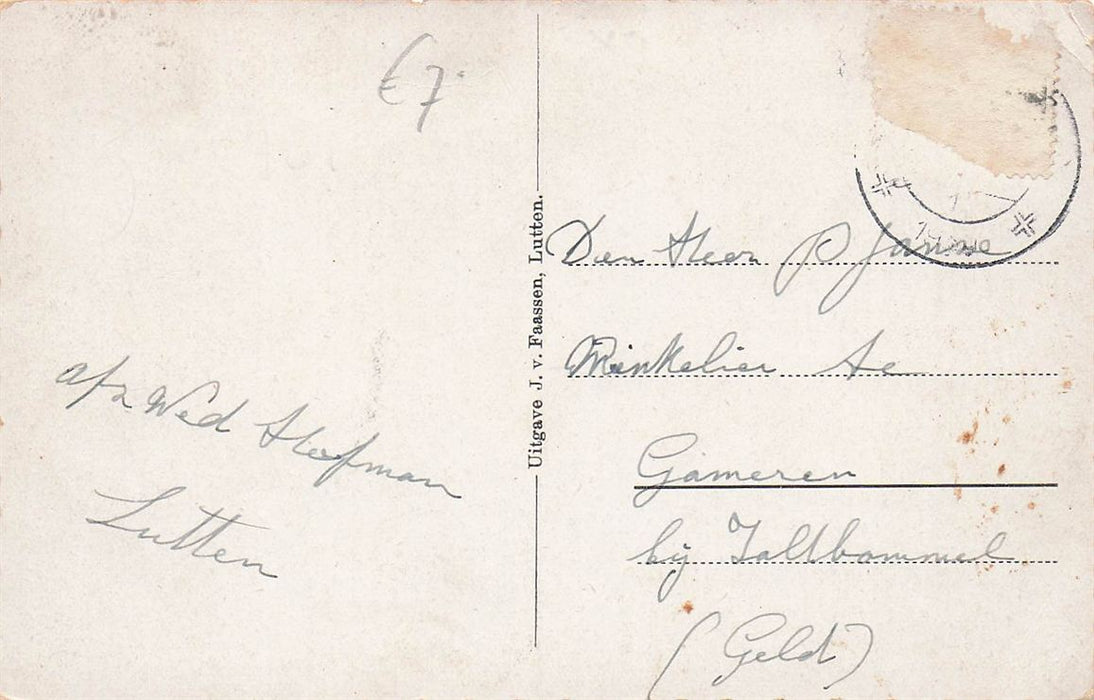 €7
afz Wed Hofman
Lutten
Uitgave J. v. Faassen, Lutten.
Den Heer P Janse
Winkelier te
Gameren
bij Zaltbommel
(Geld)